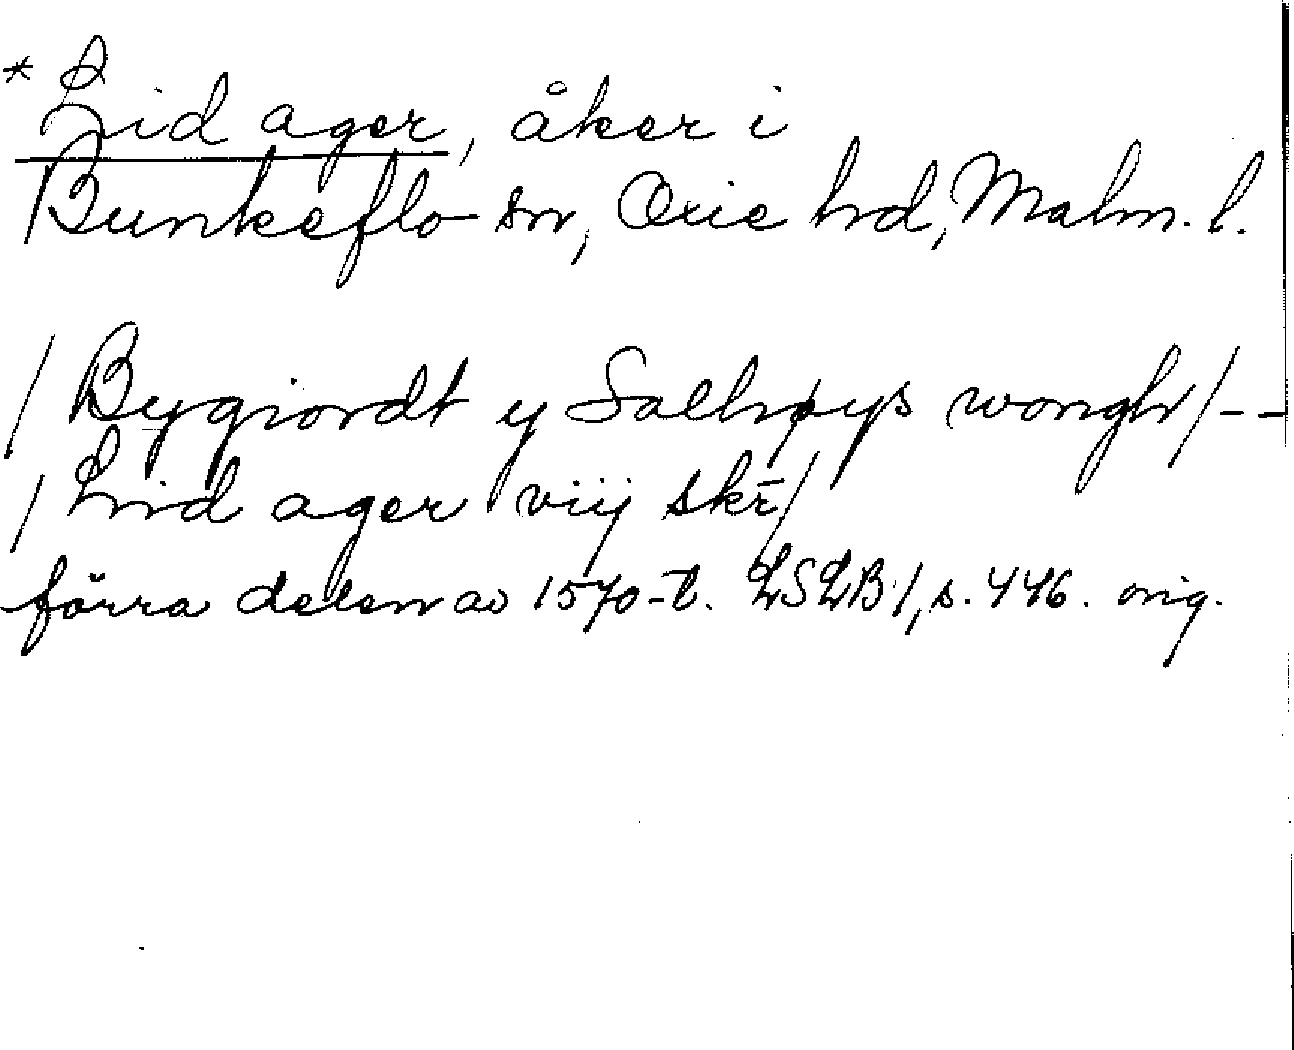 * Lid ager, åker i
Bunkeflo sn, Oxie hd, Malm. l.
/ Bygiordt y Salhøys wongh / - -
/ Liid ager viij skr /
förra delen av 1570-t. LSLB 1, s. 446. orig.